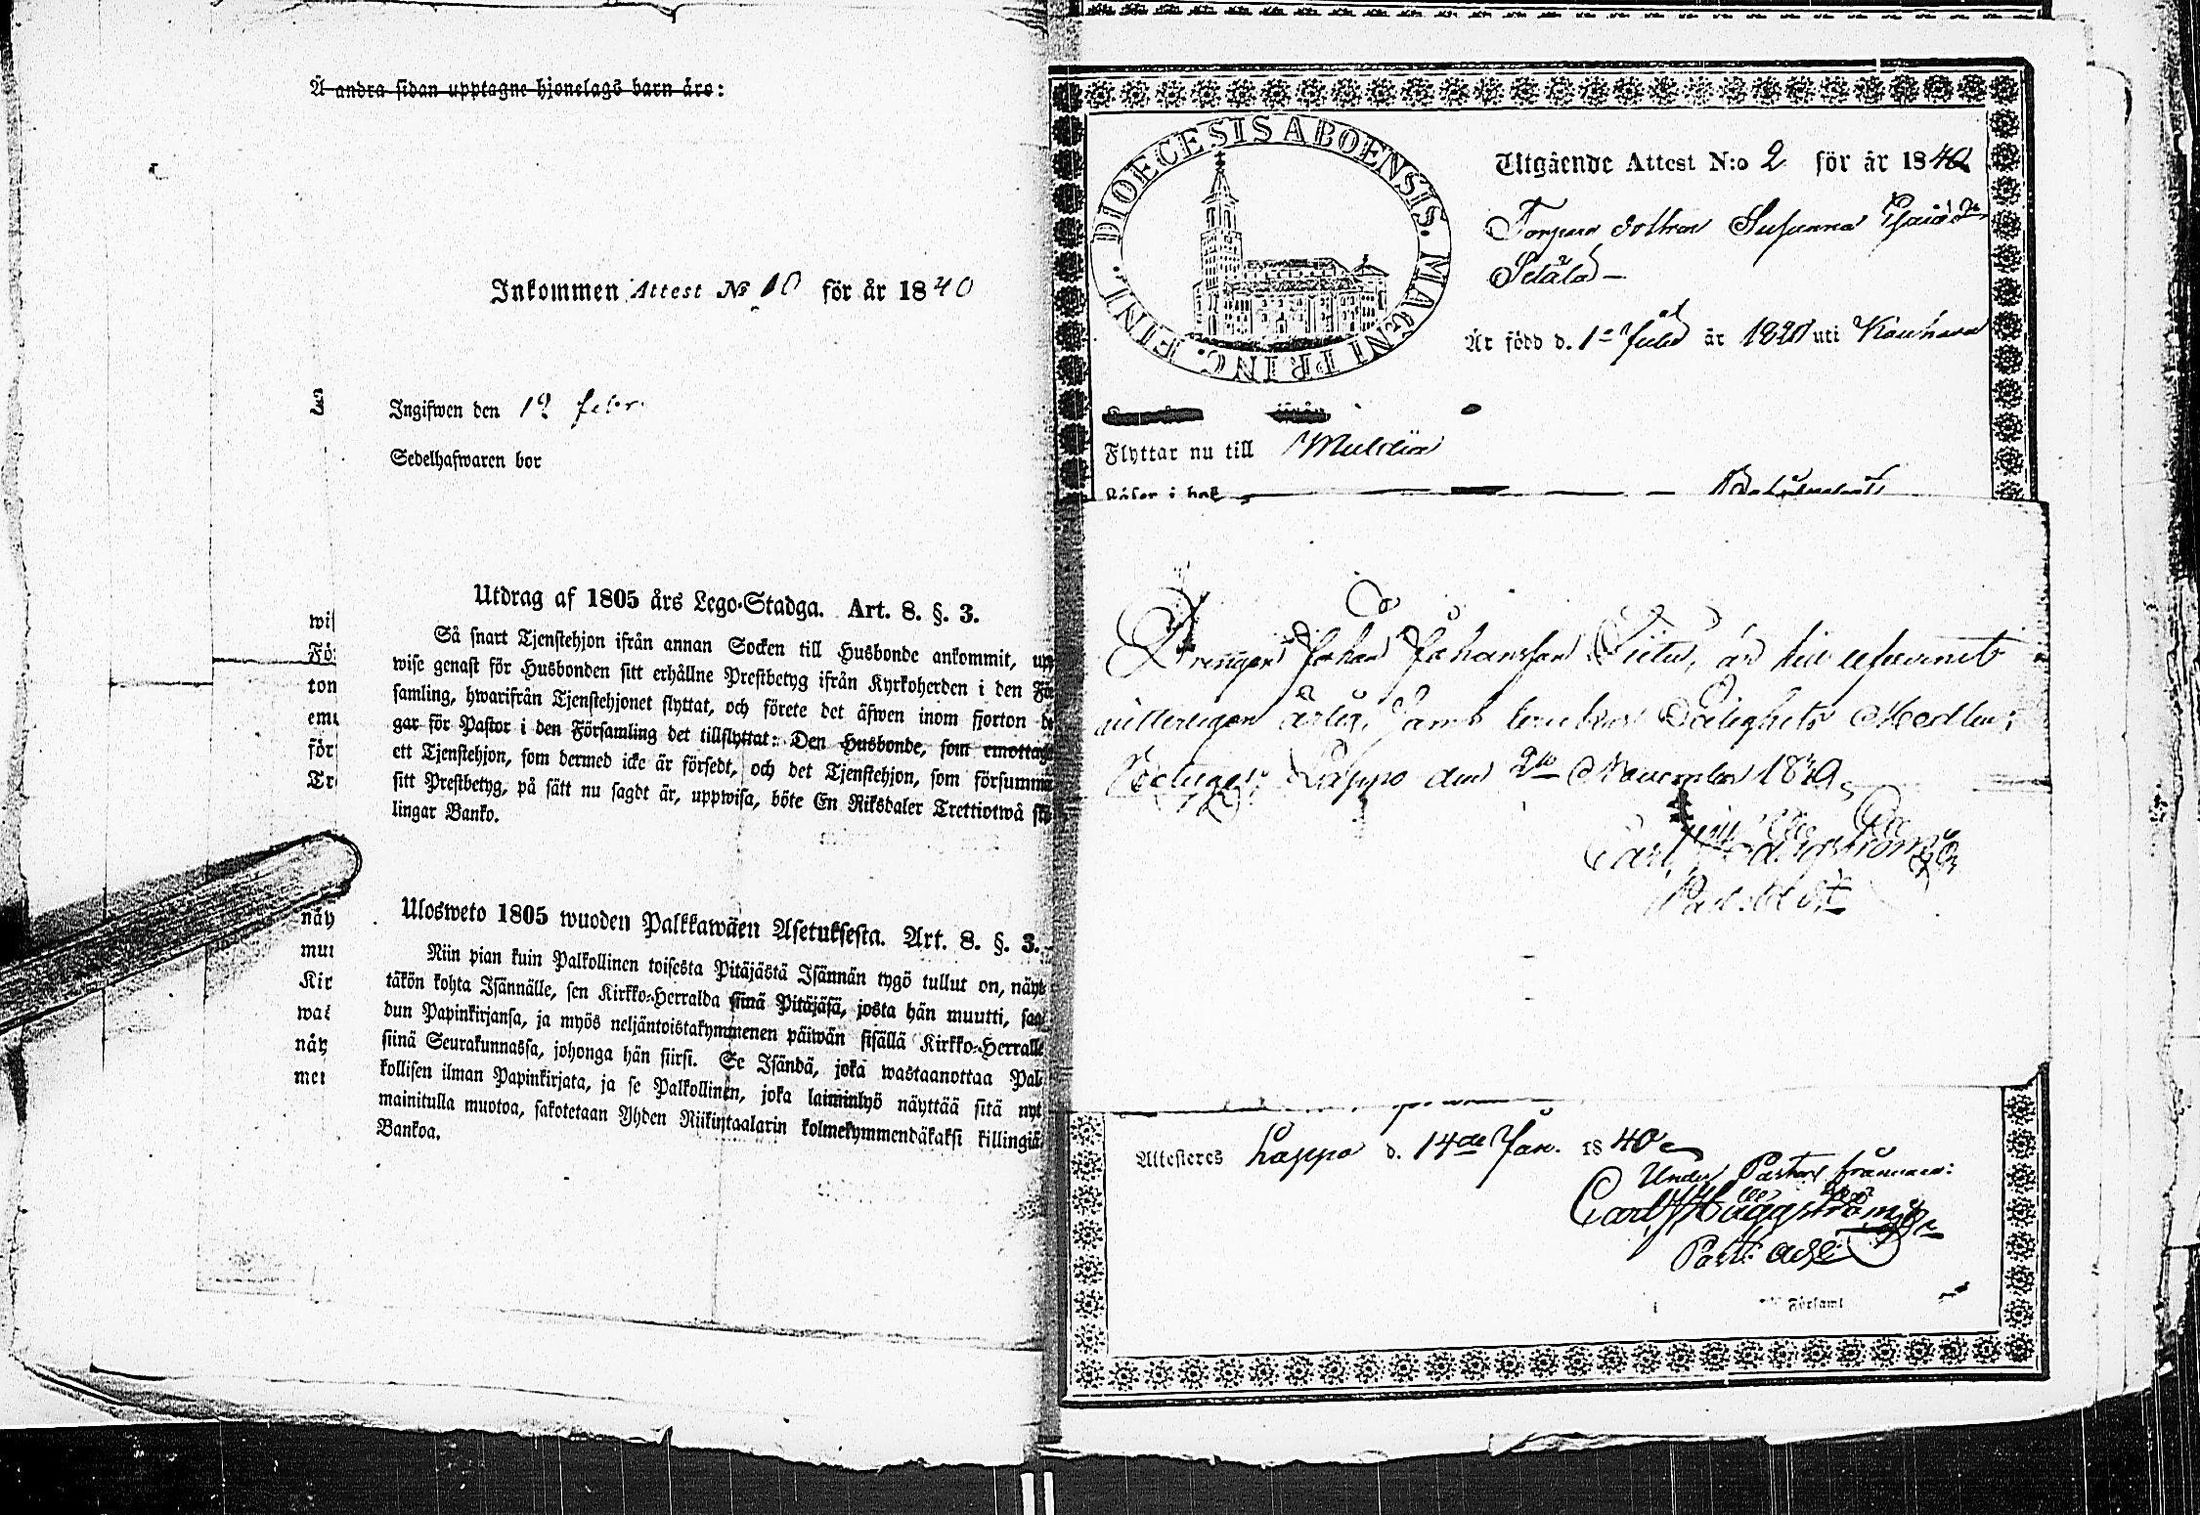 Å andra sidan upptagne hjonelags barn äro:
Inkommen Attest No 10 för år 1840
Ingifwen den 12 febr.
Sedelhafwaren bor
Utdrag af 1805 års Lego-Stadga. Art. 8. §. 3.
Så snart Tjenstehjon ifrån annan Socken till Husbonde ankommit, upp
wise genast för Husbonden sitt erhållne Prestbetyg ifrån Kyrkoherden i den För
samling, hwarifrån Tjenstehjonet flyttat, och förete det äfwen inom fjorton da
gar för Pastor i den Församling det tillflyttat: Den Husbonde, som emottager
ett Tjenstehjon, som dermed icke är försedt, och det Tjenstehjon, som försummar
sitt Prestbetyg, på sätt nu sagdt är, uppwisa, böte En Riksdaler Trettiotwå skil
lingar Banko.
Ulosweto 1805 wuoden Palkkawäen Asetuksesta. Art. 8. §. 3.
Niin pian kuin Palkollinen toisesta Pitäjästä Isännän tygö tullut on, näyt
täkön kohta Isännälle, sen Kirkko-Herralda siinä Pitäjäsä, josta hän muutti, saa
dun Papinkirjansa, ja myös neljäntoistakymmenen päiwän sisällä Kirkko-Herralle
siinä Seurakunnassa, johonga hän siirsi. Se Isändä, joka wastaanottaa Pal
kollisen ilman Papinkirjata, ja se Palkollinen, joka laiminlyö näyttää sitä nyt
mainitulla muotoa, sakotetaan Yhden Riikintaalarin kolmekymmendäkaksi killingiä
Bankoa.
wis
För
ton
em
för
Tr
näy
mu
Kir
wa
näy
mei
DIOECESIS ABOENSIS. MAGNI PRINC. FINL.
Utgående Attest N:o 2 för år 1840
Torpare dottren Susanna
År född d. 1 Juli år 1820 uti Kauhava
Flyttar nu till
Läser i bok
Drengen Johan Johansson är till
nitterligen ärlig, samt brukar Salighets Medlen;
Betygar Lappo den 2 November 1839
Carl Häggström
Attesteres Lappo d. 14de Jan. 1840
Under Pastors frånvaro:
Carl Häggström
Past: adj:
Församl